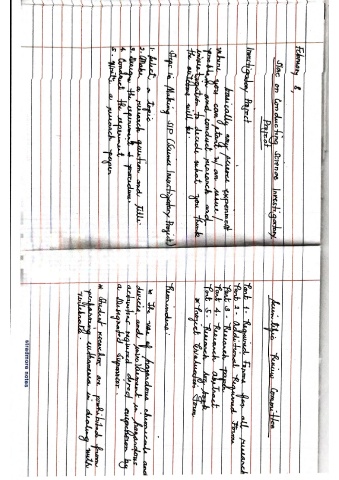 February 8,
Steps on Conducting Science Investigatory
Project
Investigatory Project
basically any science experiment
where you can start w/ an issue/
problem and conduct research and
investigation to decide what you think
the outcome will be
Steps in Making SIP (Science Investigatory Project)
1. Select a Topic
2. Make a research question and title.
3. Design the experiment & procedure.
4. Conduct the experiment
5. Write a research paper
Scientific Review Committee
Part 1 - Required Forms for all research
Part 2 - Additional Required Form
Part 3 - Research paper
Part 4 - Research abstract
Part 5 - Research log book
* Project Evaluation Form
Reminders:
* The use of hazardous chemicals and
devices, and involvement in hazardous
activities required direct supervision by
a Designated Supervisor.
* Student researchers are prohibited from
performing euthanasia in dealing with
vertebrates.